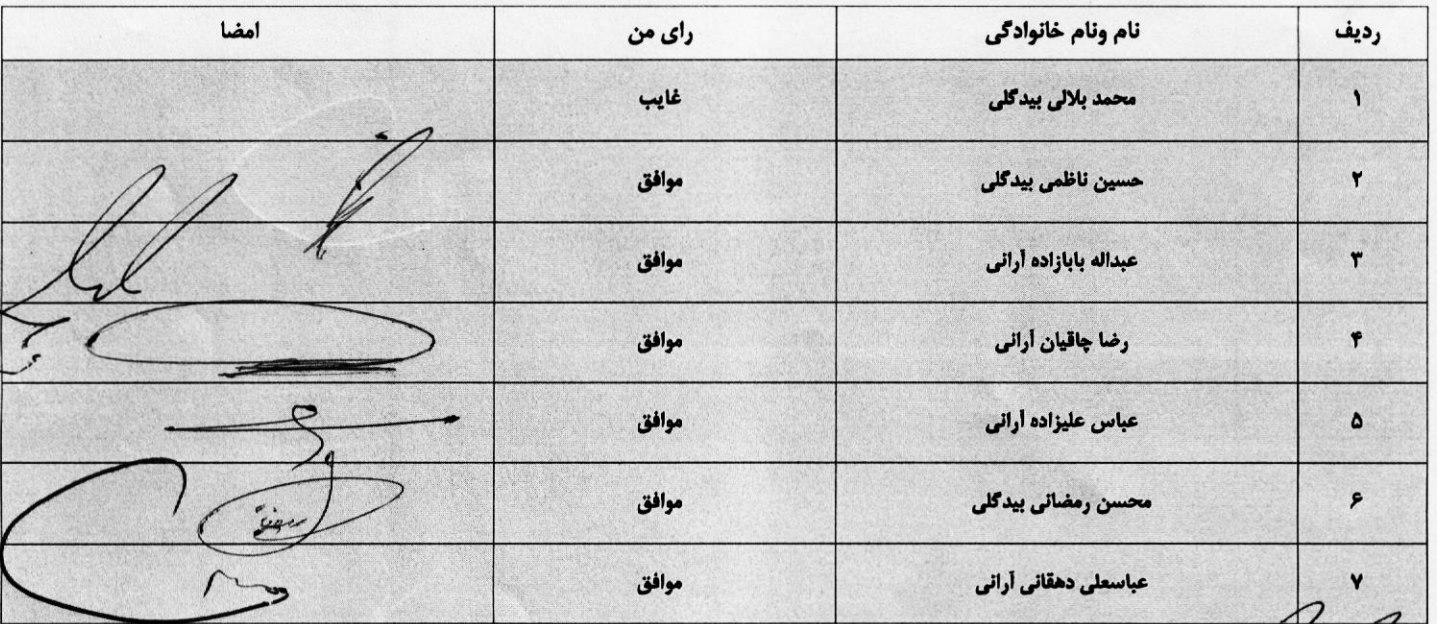 ردیف نام ونام خانوادگی رای من امضا
۱ محمد بلالی بیدگلی غایب
۲ حسین ناظمی بیدگلی موافق
۳ عبداله بابازاده آرانی موافق
۴ رضا چاقیان آرانی موافق
۵ عباس علیزاده آرانی موافق
۶ محسن رمضانی بیدگلی موافق
۷ عباسعلی دهقانی آرانی موافق